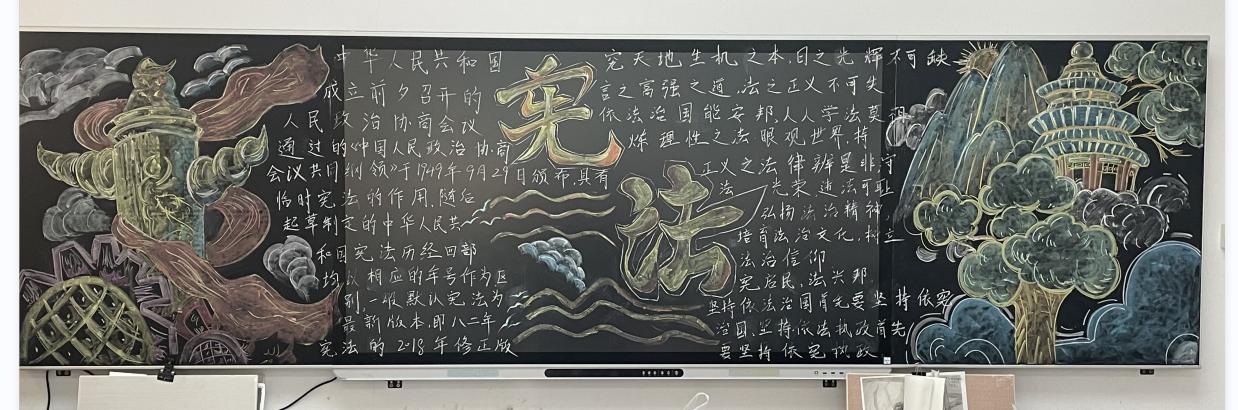 中华人民共和国
成立前夕召开的
人民政治协商会议
通过的《中国人民政治协商
会议共同纲领》于1949年9月29日颁布,具有
临时宪法的作用,随后
起草制定的中华人民共
和国宪法历经四部
均以相应的年号作为区
别,一般默认宪法为
最新版本,即八二年
宪法的2018年修正版
宪
法
宪天地生机之本,日之光辉不可缺
言之高强之道,法之正义不可失
依法治国能安邦,人人学法莫
炼理性之法眼观世界持
正义之法律辨是非,守
法光荣,违法可耻
弘扬法治精神,
培育法治文化,树立
法治信仰
宪启民,法兴邦
坚持依法治国首先要坚持依宪
治国,坚持依法执政首先
要坚持依宪执政